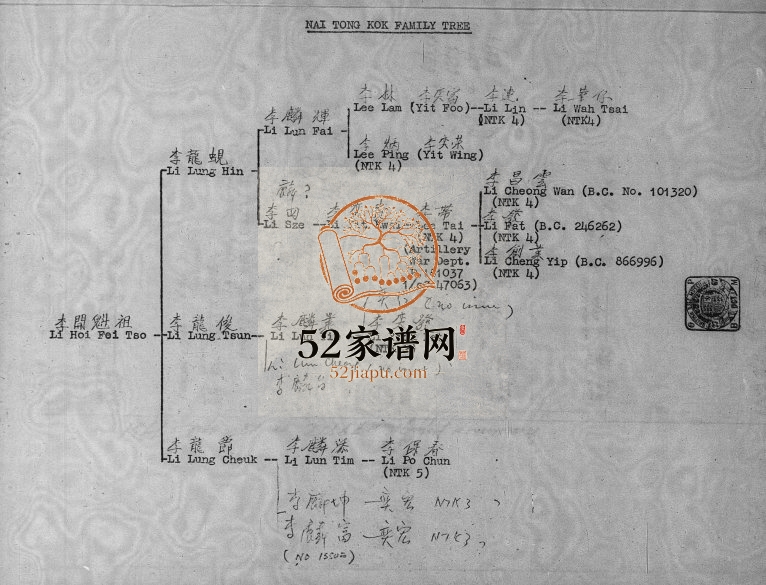 NAI TONG KOK FAMILY TREE
李林 李奕富 李連 李華仔
Lee Lam (Yit Foo)--Li Lin -- Li Wah Tsai
(NTK 4) (NTK4)
李麟輝
Li Lun Fai
李炳 李奕榮
Lee Ping (Yit Wing)
(NTK 4)
李龍蜆
Li Lung Hin
李昌雲
Li Cheong Wan (B.C. No. 101320)
(NTK 4)
李四 李帶
Li Sze Tai
(NTK 4)
(Artillery
War Dept.
李發
Li Fat (B.C. 246262)
(NTK 4)
Li Cheng Yip (B.C. 866996)
(NTK 4)
47063)
(no issue)
李開魁祖
Li Hoi Fei Tso
李龍俊
Li Lung Tsun
李麟
52家谱网
52jiapu.com
李龍節
Li Lung Cheuk
李麟添
Li Lun Tim
李保春
Li Po Chun
(NTK 5)
李麟坤 — 奕宏 NTK3
李麟富 — 奕宏 NTK3
(NO ISSUE)